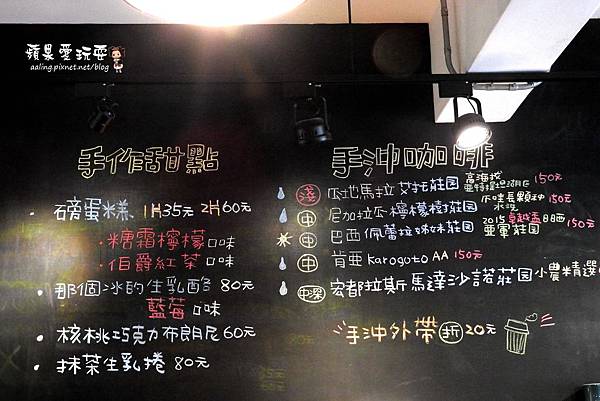 蘋果愛玩耍
aaling.pixnet.net/blog
手作甜點
• 磅蛋糕 1片35元 2片60元
• 糖霜檸檬口味
• 伯爵紅茶口味
• 那個冰的生乳酪 80元
藍莓口味
• 核桃巧克力布朗尼 60元
• 抹茶生乳捲 80元
手沖咖啡
淺 瓜地馬拉 艾托莊园 高海拔 150元
中 尼加拉瓜 檸檬樹莊园 水洗 150元
中 巴西 佩蕾拉姊妹莊园 2015卓越盃日晒 亞軍莊园 150元
中 肯亞 Karogoto AA 150元
中深 宏都拉斯 馬達沙諾莊园 小農精選
手沖外帶折20元